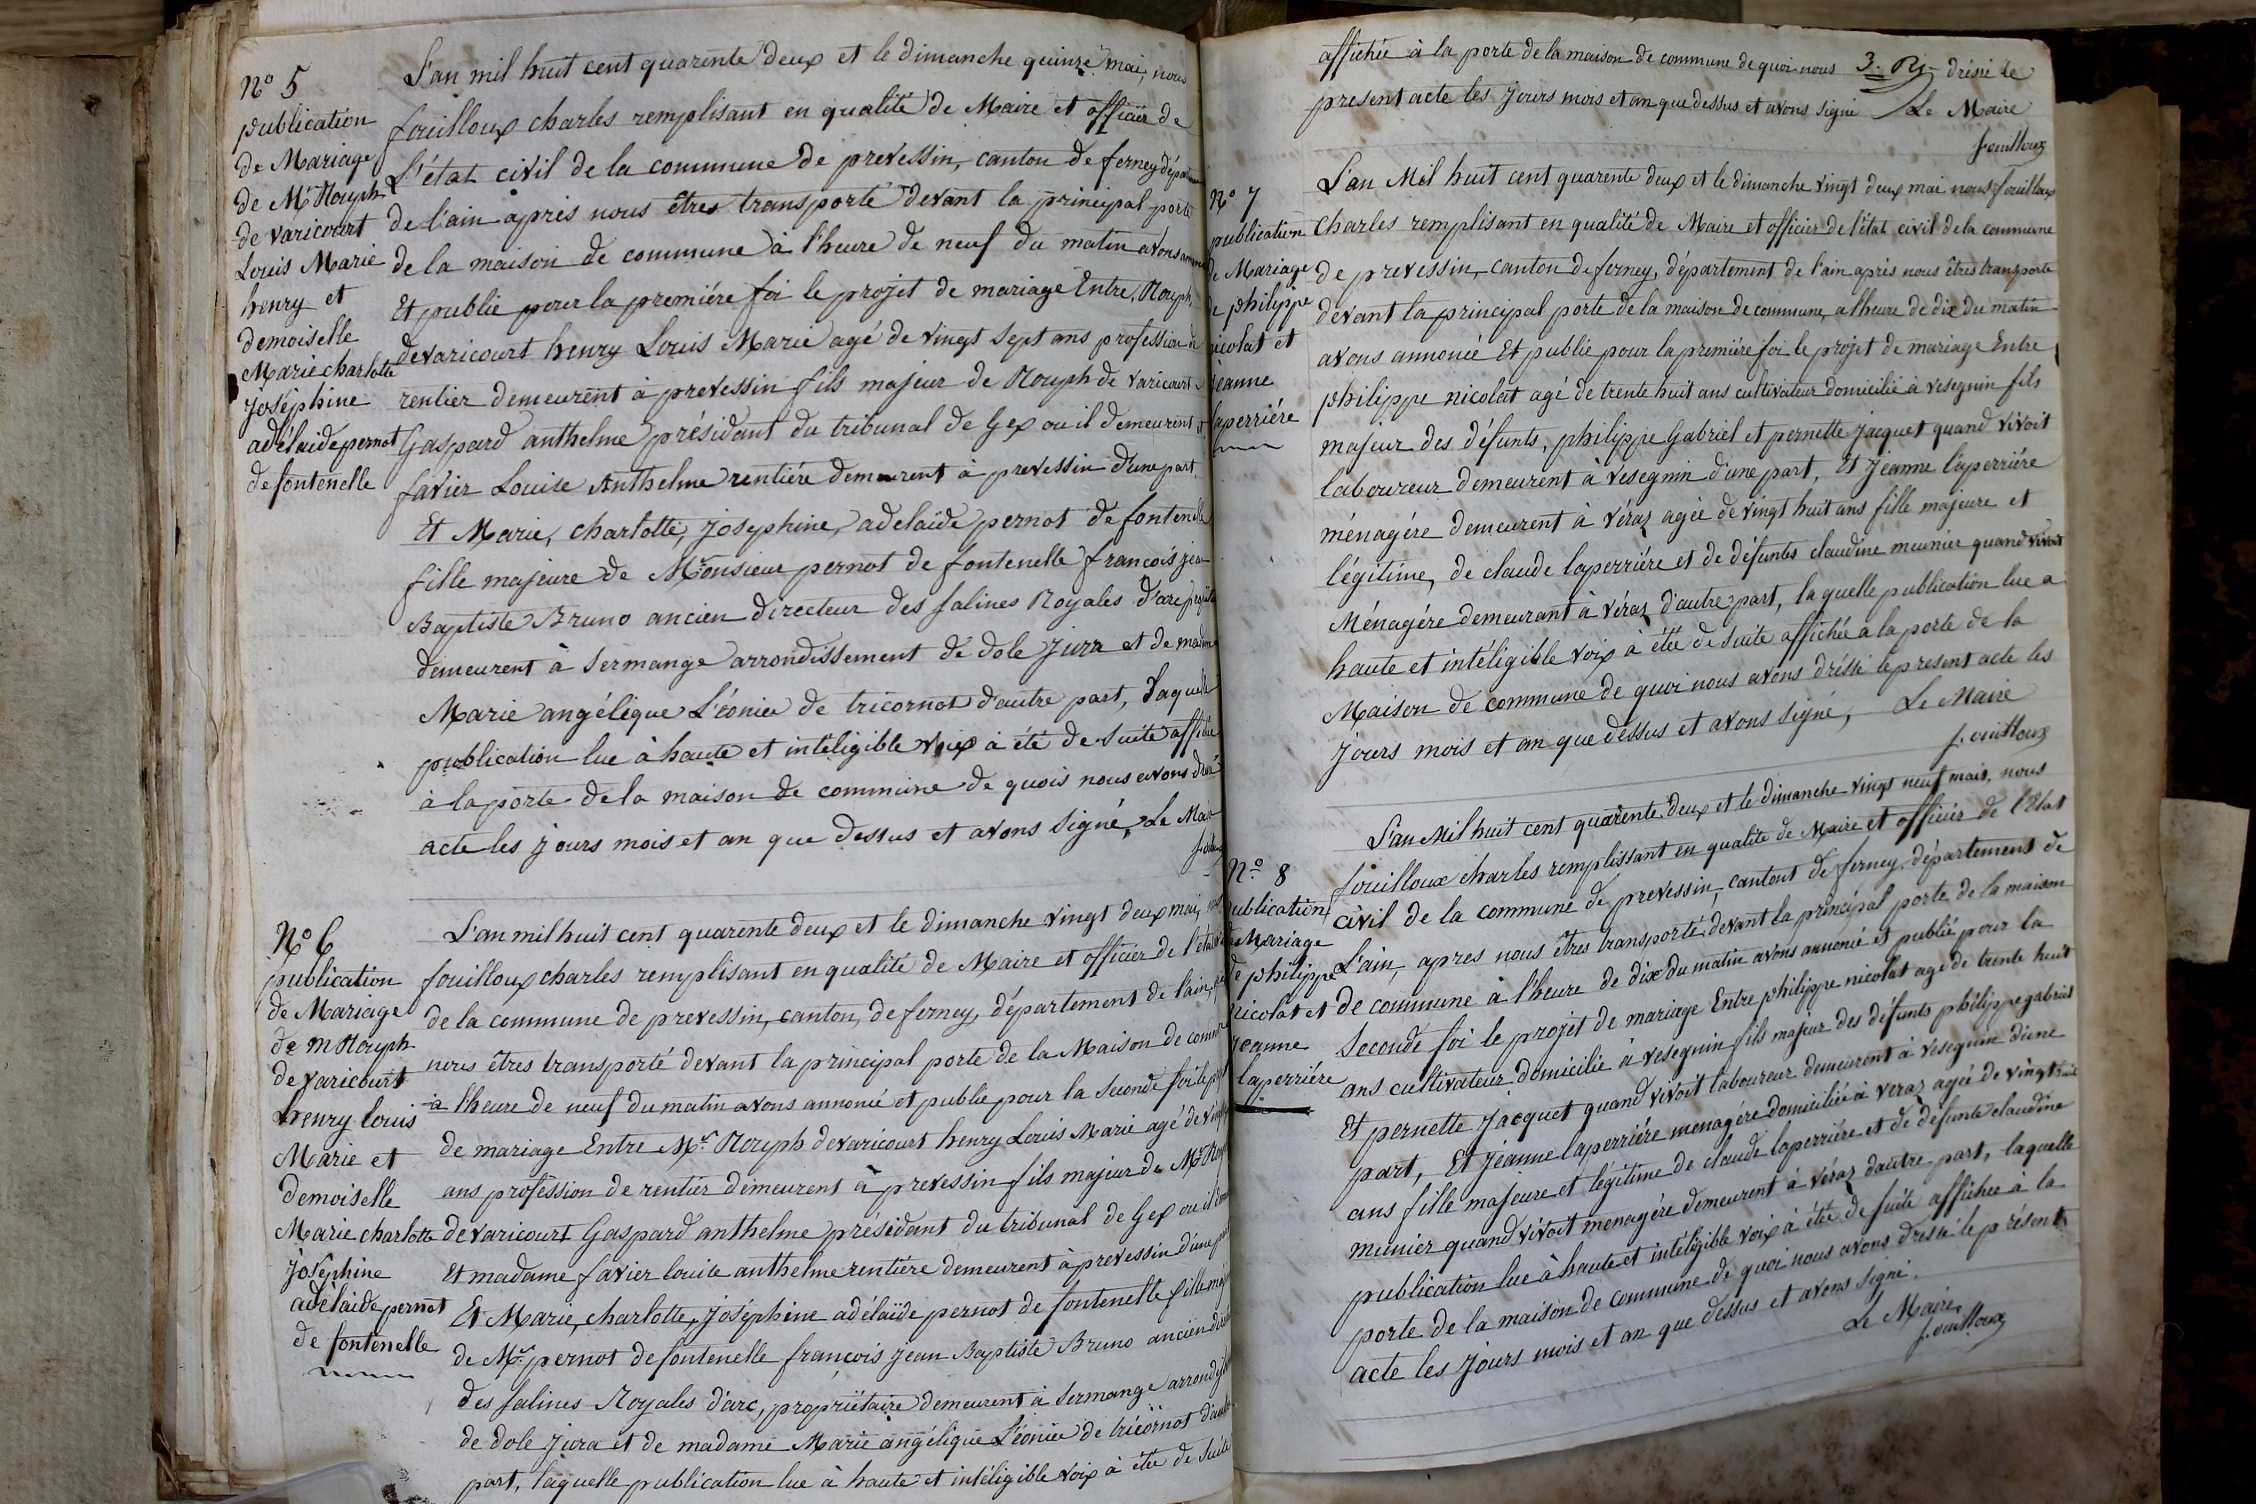 N° 5
publication
de Mariage
de Mr Rouph
de varicourt
Louis Marie
henry et
demoiselle
Marie charlotte
joséphine
adélaide pernot
de fontenelle
L'an mil huit cent quarente deux et le dimanche quinze mai, nous
fouilloux charles remplisant en qualité de Maire et officier de
L'état civil de la commune de prevessin, canton de ferney
de l'ain après nous êtres transporté devant la principal porte
de la maison de commune à l'heure de neuf du matin avons
Et publié pour la première foi le projet de mariage Entre, Rouph
devaricourt henry Louis Marie agé de vingt sept ans profession de
rentier demeurent à prevessin fils majeur de Rouph de varicourt
Gaspard anthelme présidant du tribunal de Gex ou il demeurent et
favier Louise Anthelme rentiére demeurent à prevessin d'une part,
Et Marie, charlotte, josephine, adelaïde pernot de fontenelle
fille majeure de Monsieur pernot de fontenelle francois jean
Baptiste Bruno ancien directeur des salines Royales d'arc
demeurent à Sermange arrondissement de dole Jura et de madame
Marie angélique L'éonice de tricornot d'autre part, Laquelle
publication lue à haute et inteligible voix à été de suite affichée
à la porte de la maison de commune de quois nous avons
acte les jours mois et an que dessus et avons signé, Le Maire
N° 6
publication
de Mariage
de m Rouph
devaricourt
henry louis
Marie et
demoiselle
Marie charlotte
joséphine
adélaide pernot
de fontenelle
L'an mil huit cent quarente deux et le dimanche vingt deux mai, nous
fouilloux charles remplisant en qualité de Maire et officier de l'état
de la commune de prevessin, canton, de ferney, département de l'ain,
nous êtres transporté devant la principal porte de la Maison de commune
à l'heure de neuf du matin avons annoncé et publié pour la seconde foi le
de mariage Entre Mr. Rouph devaricourt henry Louis Marie agé de
ans profession de rentier demeurent à prevessin fils majeur de Mr
devaricourt Gaspard anthelme présidant du tribunal de Gex ou il
Et madame favier louise anthelme rentiére demeurent à prevessin d'une
Et Marie, charlotte, joséphine adélaïde pernot de fontenelle fille
de Mr pernot de fontenelle francois jean Baptiste Bruno ancien
des salines Royales d'arc, propriétaire demeurent à Sermange
de dole jura et de madame Marie angélique L'éonice de tricornot
part, laquelle publication lue à haute et intéligible voix à été de suite
affichée à la porte de la maison de commune de quoi nous 3. dréssé le
present acte les jours mois et an que dessus et avons signé Le Maire
fouilloux
N° 7
publication
de Mariage
de philippe
nicolat et
jeanne
laperriére
L'an Mil huit cent quarente deux et le dimanche vingt deux mai nous fouilloux
Charles remplisant en qualité de Maire et officier de l'état civil de la commune
de prevessin, canton de ferney, département de l'ain après nous êtres transporté
devant la principal porte de la maison de commune, a lheure de dix du matin
avons annoncé Et publié pour la premiére foi le projet de mariage Entre
philippe nicolat agé de trente huit ans cultivateur domicilié à vesegnin fils
majeur des défunts, philippe Gabriel et pernette jacquet quand vivoit
laboureur demeurent à vesegnin d'une part, Et jeanne laperriére
ménagére demeurent à véraz agée de vingt huit ans fille majeure et
légitime, de claude laperriére et de défuntes claudine meunier quand vivoit
Ménagére demeurant à véraz d'autre part, la quelle publication lue a
haute et intéligible voix à été de suite affichée a la porte de la
Maison de commune de quoi nous avons dréssé le present acte les
jours mois et an que dessus et avons signé, Le Maire
fouilloux
N° 8
publication
de Mariage
de philippe
nicolat et
jeanne
laperriére
L'an Mil huit cent quarente deux et le dimanche vingt neuf mais, nous
fouilloux charles remplissant en qualité de Maire et officier de l'Etat
civil de la commune de prevessin, cantont de ferney département de
L'ain, apres nous êtres transporté, devant la principal porte de la maison
de commune à l'heure de dix du matin avons annoncé et publié pour la
seconde foi le projet de mariage Entre philippe nicolat agé de trente huit
ans cultivateur domicilié à vesegnin fils majeur des défunts philippe gabriel
Et pernette jacquet quand vivoit laboureur demeurent à vesegnin d'une
part, Et jeanne laperriére menagére domiciliée à veraz agée de vingt huit
ans fille majeure et légitime de claude laperriére et de défunte claudine
meunier quand vivoit menagére demeurent à véraz d'autre part, laquelle
publication lue à haute et intéligible voix à été de suite affichée à la
porte de la maison de commune de quoi nous avons dréssé le présent
acte les jours mois et an que dessus et avons signé.
Le Maire,
fouilloux